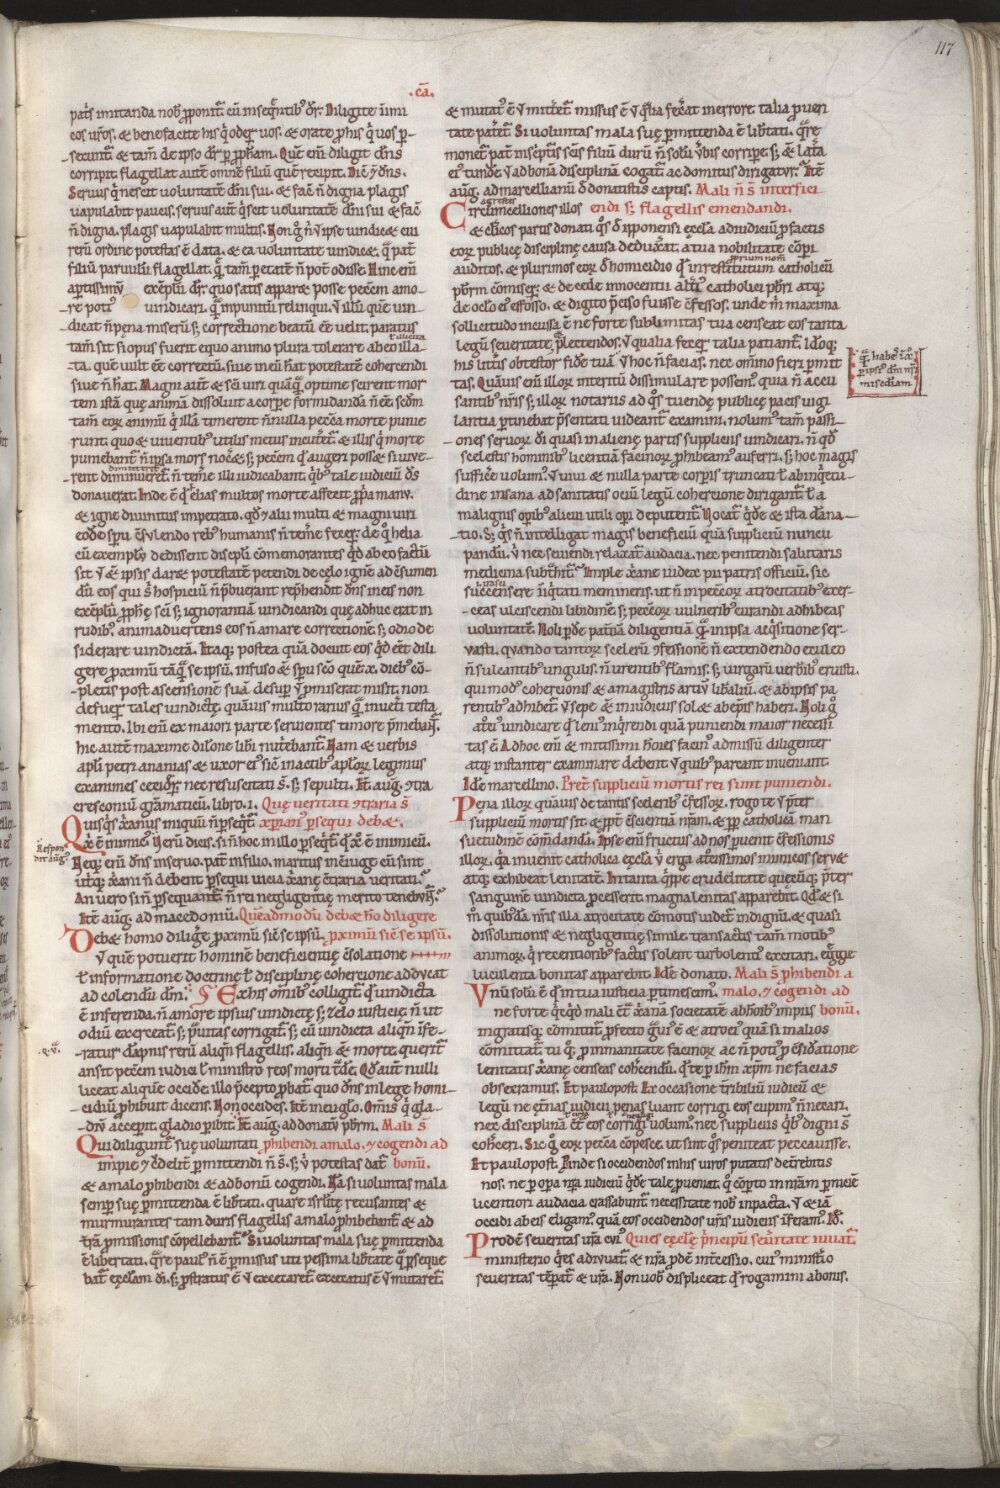 117
.cā.
pat̄s imitanda nob̄ ꝓponit᷑. cū inseq̄ntib᷒ dr̄. Diligite inimi
cos ur̄os. & benefacite his q̇ oder̄ uos. & orate ꝓ his q̇ uos ꝑ-
secunt᷑. & tam̄ de ipso dr̄ ꝑ ꝓph̄am. Quē em̄ diligit dn̄s
corripit. flagellat aut̄ omnē filiū quē recipit. Dic̄ & dn̄s.
Seruus q̇ nescit uoluntatē dn̄i sui. & fac̄ n̄ digna plagis
uapulabit paucis. seruus aut̄ q̇ scit uoluntatē dn̄i sui & fac̄
n̄ digna. plagis uapulabit multis. Non
rerū ordine potestas ē data. & ea uoluntate uindicet. q̄ pat̄
filiū paruulū flagellat. quē tam̄ ꝑ etatē n̄ pot̄ odisse. Hinc em̄
aptissimū exēplū dr̄. quo satis appareat posse peccm̄ amo-
re poti᷒ uindicari. quā inpunitū relinqui. ut illū quē uin-
dicat n̄ pena miserū s; correctione beatū ēē uelit. paratus
tam̄ sit si opus fuerit equo animo plura tolerare ab eo illa-
ta. quē uult ēē correctū. siue in eū habeat potestatē cohercendi
siue n̄ habeat. Magni aut̄ & sc̄i uiri quāuis optime scirent mor
tem istā quę animā dissoluit a corpe formidandā n̄ ēē. scd̄m
tam̄ eoꝝ animū q̇ illā timerent n̄nulla peccā morte punie
runt. quo & uiuentib᷒ utilis metus incuteret᷑. & illis q̇ morte
puniebant᷑ n̄ ipsa mors noceret. s; peccm̄ quod augeri posset si uiue-
diminueretur
rent diminueret᷑. n̄ temere illi iudicabant. q̇b᷒ tale iudiciū ds̄
donauerat. Inde ē quod elias multos morte affecit ꝓpa manu.
& igne diuinitus impetrato. qd̄ & alii multi & magni uiri
eodē spū consulendo reb᷒ humanis n̄ temere fecer̄. de quo helia
cū exemplū dedissent discipli cōmemorantes quid ab eo factū
sit ut & ipsis daret potestatē petendi de cęlo ignē ad consumen
dū eos qui s̄ hospiciū n̄ p̄buerant. rephendit dn̄s in eis non
exēplū ꝓphę sc̄i s; ignorantiā uindicandi quę adhuc erat in
rudib᷒. animaduertens eos n̄ amare correctionē s; odio de
siderare uindictā. Itaq; postea quā docuit eos quid ēēt dili
gere ꝓximū tāquā se ipsū. infuso & spū scō quē x. dieb᷒ cō-
pletis post ascensionē suā desup ut ꝓmiserat misit. non
defuer̄ tales uindictę. quāuis multo rarius quā in ueteri testa
mento. Ibi em̄ ex maiori parte seruientes timore p̄mebant᷑.
hic autē maxime dilōne libi nutrebant᷑. Nam & uerbis
apl̄i petri ananias & uxor ei᷒ sicut in actib᷒ aploꝝ legimus
exanimes ceciderunt. nec resuscitati s̄. s; sepulti. Itē aug. ꝯtra
cresconiū gramaticū. libro .i. Quę ueritati ꝯtraria s̄
Quisq̇s xp̄ianus iniquū n̄ ꝑseq̄t᷑. xp̄ian᷒ ꝑsequi debet.
x̄ ē inimic᷒. Verū dicis. si n̄ hoc in illo ꝑseq̄t᷑ quod x̄ ē inimicū.
Respon
dit aug᷒
Neq; em̄ dn̄s in seruo. pat̄ in filio. maritus in cōiuge cū sint
utiq; xp̄iani n̄ debent ꝑsequi uicia xp̄ianę contraria ueritati.
An uero si n̄ ꝑsequant᷑. n̄ rei negligentię merito tenebunt᷑.
Itē aug. ad macedoniū. Quēadmodū debeat hō diligere
Debet homo diligere ꝓximū sicut se ipsū. ꝓximū sicut se ipsū.
ut quē potuerit hominē beneficientię consolatione
ł informatione doctrinę ł disciplinę cohercione adducat
ad colendū dm̄. Ex his omib᷒ colligit᷑ quod uindicta
ē inferenda. n̄ amore ipsius uindictę s; zelo iusticię. n̄ ut
odiū exerceat᷑. s; ꝓuitas corrigat᷑. s; cū uindicta aliqn̄ infe-
ratur dāpnis rerū aliqn̄ flagellis. aliqn̄ & morte. querit᷑
.q.v̄.
an sit peccm̄ iudici ł ministro reos morti tradere. Qd̄ aut̄ nulli
liceat aliquē occidere. illo p̄cepto ꝓbat᷑ quo dn̄s in lege homi-
cidiū ꝓhibuit dicens. Non occides. Itē in euglo. Omis q̇ gla-
diū acceperit. gladio peribit. Itē aug. ad donatū pbrm̄. Mali s̄
Qui diligunt᷑ suę uoluntati ꝓhibendi a malo. & cogendi ad
impie & crudelit̄ ꝑmittendi n̄ s̄. s; ubi potestas dat᷑ bonū.
& a malo ꝓhibendi & ad bonū cogendi. Nam si uoluntas mala
semper suę ꝑmittenda ē libtati. quare isrlitę recusantes &
murmurantes tam duris flagellis a malo ꝓhibebant᷑ & ad
terrā ꝓmissionis cōpellebant᷑. Si uoluntas mala suę ꝑmittenda
ē libertati. quare paulus n̄ ē ꝑmissus uti pessima libtate qua ꝑseque
bat᷑ ęcclam di. s; ꝓstratus ē ut excecaret᷑. excecatus ē ut mutaret᷑.
& mutat᷒ ē ut mitteret᷑. missus ē ut qualia fecerat in errore talia ꝓ ueri
tate pateret᷑. Si uoluntas mala suę ꝑmittenda ē libtati. quare
monet᷑ pat̄ in scptis scīs filiū durū n̄ solū ubis corripere s; & latera
ei᷒ tundere. ut ad bonā disciplinā cogat᷑ ac domitus dirigatur. Itē
aug. ad marcellianū de donatistis captis. Mali n̄ s̄ interfici
agrestes
Circumcelliones illos endi s; flagellis emendandi.
& clicos partis donati quos de ipponensi eccla ad iudiciū ꝓ factis
eoꝝ publicę disciplinę causa deduxerat. a tua nobilitate cōperi
ꝓprium nom̄
auditos. & plurimos eoꝝ de homicidio quod in restitutum catholicū
pbrm comiser̄. & de cede innocentii alt̄i᷒ catholici pbri atq;
de oclo ei᷒ effosso. & digito p̄ciso fuisse cfessos. unde m̄ maxima
sollicitudo incussa ē ne forte sublimitas tua censeat eos tanta
legū seueritate plectendos. ut qualia fecer̄ talia patiant᷑. Idoq;
his litt̄is obtestor fidē tuā ut hoc n̄ facias. nec omīno fieri ꝑmit
quā habes in xpo
ꝑ ipsi᷒ dn̄i nr̄i
misedīam
tas. Quāuis em̄ illoꝝ interitū dissimulare possem᷒. quia n̄ accu
santib᷒ nr̄is s; illoꝝ notarius ad quos tuendę publicę pacis uigi
lantia ꝑtinebat p̄sentati uideant᷑ examini. nolum᷒ tam̄ passi-
ones seruoꝝ di quasi in alienę partis suppliciis uindicari. n̄ quod
scelestus hominib᷒ licentiā facinoꝝ ꝓhibeam᷒ auferri. s; hoc magis
sufficere uolum᷒. ut uiui & nulla parte corpis truncati ł ab inqueta
dine insana ad sanitatis ociū legū cohercione dirigant᷑. ł a
malignis opib᷒ alicui utili opi deputent᷑. Vocat᷑ quidē & ista damna-
tio. s; q̇s n̄ intelligat magis beneficiū quā suppliciū nuncu
pandū. ubi nec seuiendi relaxat᷑ audacia. nec penitendi salutaris
medicina subthit᷑. Imple xp̄iane iudex pii patris officiū. sic
irasci
succensere iniq̇tati memineris. ut n̄ in peccoꝝ atrocitatib᷒ exer-
ceas ulciscendi libidinē s; peccoꝝ uulnerib᷒ curandi adhibeas
uoluntatē. Noli perdere pat̄nā diligentiā quā in ipsa acq̇sitione ser-
uasti. quando tantoꝝ scelerū ꝯfessionē n̄ extendendo eculeo
n̄ sulcantib᷒ ungulis. n̄ urentib᷒ flamis. s; uirgarū uerberib᷒ eruisti.
qui modus cohercionis & a magistris artiū libaliū. & ab ipsis pa
rentib᷒ adhibet᷑. ut sepe & in iudiciis solet ab epis haberi. Noli ergo
atroci᷒ uindicare quod leni᷒ inq̇rendi quā puniendi maior necessi
tas ē. Ad hoc em̄ & mitissimi hoīes facin᷒ admissū diligenter
atq; instanter examinare debent. ut quib᷒ parcant inueniant.
Idē marcellino. Preter suppliciū mortis rei sunt puniendi.
Pena illoꝝ quāuis de tantis sceleribus confessoꝝ. rogo te ut p̄ter
suppliciū mortis sit. & ꝓpter cscientiā nr̄am. & ꝓpter catholicā man
suetudinē commdandā. Ipse em̄ fructus ad nos puenit cfessionis
illoꝝ. quā inuenit catholica eccla ubi erga atrocissimos inimicos seruet
atq; exhibeat lenitatē. In tanta quippe crudelitate quęcūq; p̄ter
sanguinē uindicta pcesserit magna lenitas apparebit. Qd̄ etsi
m̄ quib᷒dā nr̄is illa atrocitate cōmotis uidet᷑ indignū. & quasi
dissolutionis & negligentię simile. transactis tam̄ motib᷒
animoꝝ. q̇ recentiorib᷒ factis solent turbolenti᷒ excitari. egregie
luculenta bonitas apparebit. Idē donato. Mali s̄ ꝓhibendi a
Vnū solū ē quod in tua iusticia ꝑtimescim᷒. malo. & cogendi ad
ne forte quicquid mali contra xp̄ianā societatē ab hoīb᷒ impiis bonū.
ingratisq; cōmittit᷑. ꝓfecto graui᷒ ē & atroci᷒ quā si in alios
cōmittat᷑. tu quoque ꝓ inmanitate facinoꝝ ac n̄ poti᷒ ꝓ csidatione
lenitatis xp̄ianę censeas cohcendū. quod te ꝑ ihm xp̄m ne facias
obsecramus. Et paulo post. Ex occasione terribiliū iudicū &
legū ne et̄nas iudicii penas luant corrigi eos cupim᷒ n̄ necari.
nec disciplinā circa eos corrigi uolum᷒. nec suppliciis quib᷒ digni s̄
coherceri. Sic ergo eoꝝ peccā cōpesce. ut sint quos peniteat peccauisse.
Et paulo post. Proinde si occidendos in his uiros putatis decretebitis
nos. ne ꝑ opa nr̄a iudiciū quidē tale ꝓueniat. quo compto in nr̄am ꝑniciē
licentiori audacia crassabunt᷑. necessitate nob̄ inpacta. ut etiā
occidi ab eis eligam᷒. quā eos occidendos ur̄is iudiciis inferam᷒. Idē.
Prodē seueritas ur̄a cui᷒ Quies ęcclę pncipū seueritate iuuat᷑.
ministerio quies adiuuat᷑. & nr̄a ꝓdē intcessio. cui᷒ ministio
seueritas tēpat᷑ & ur̄a. Non uob̄ displiceat quod rogamini a bonis.